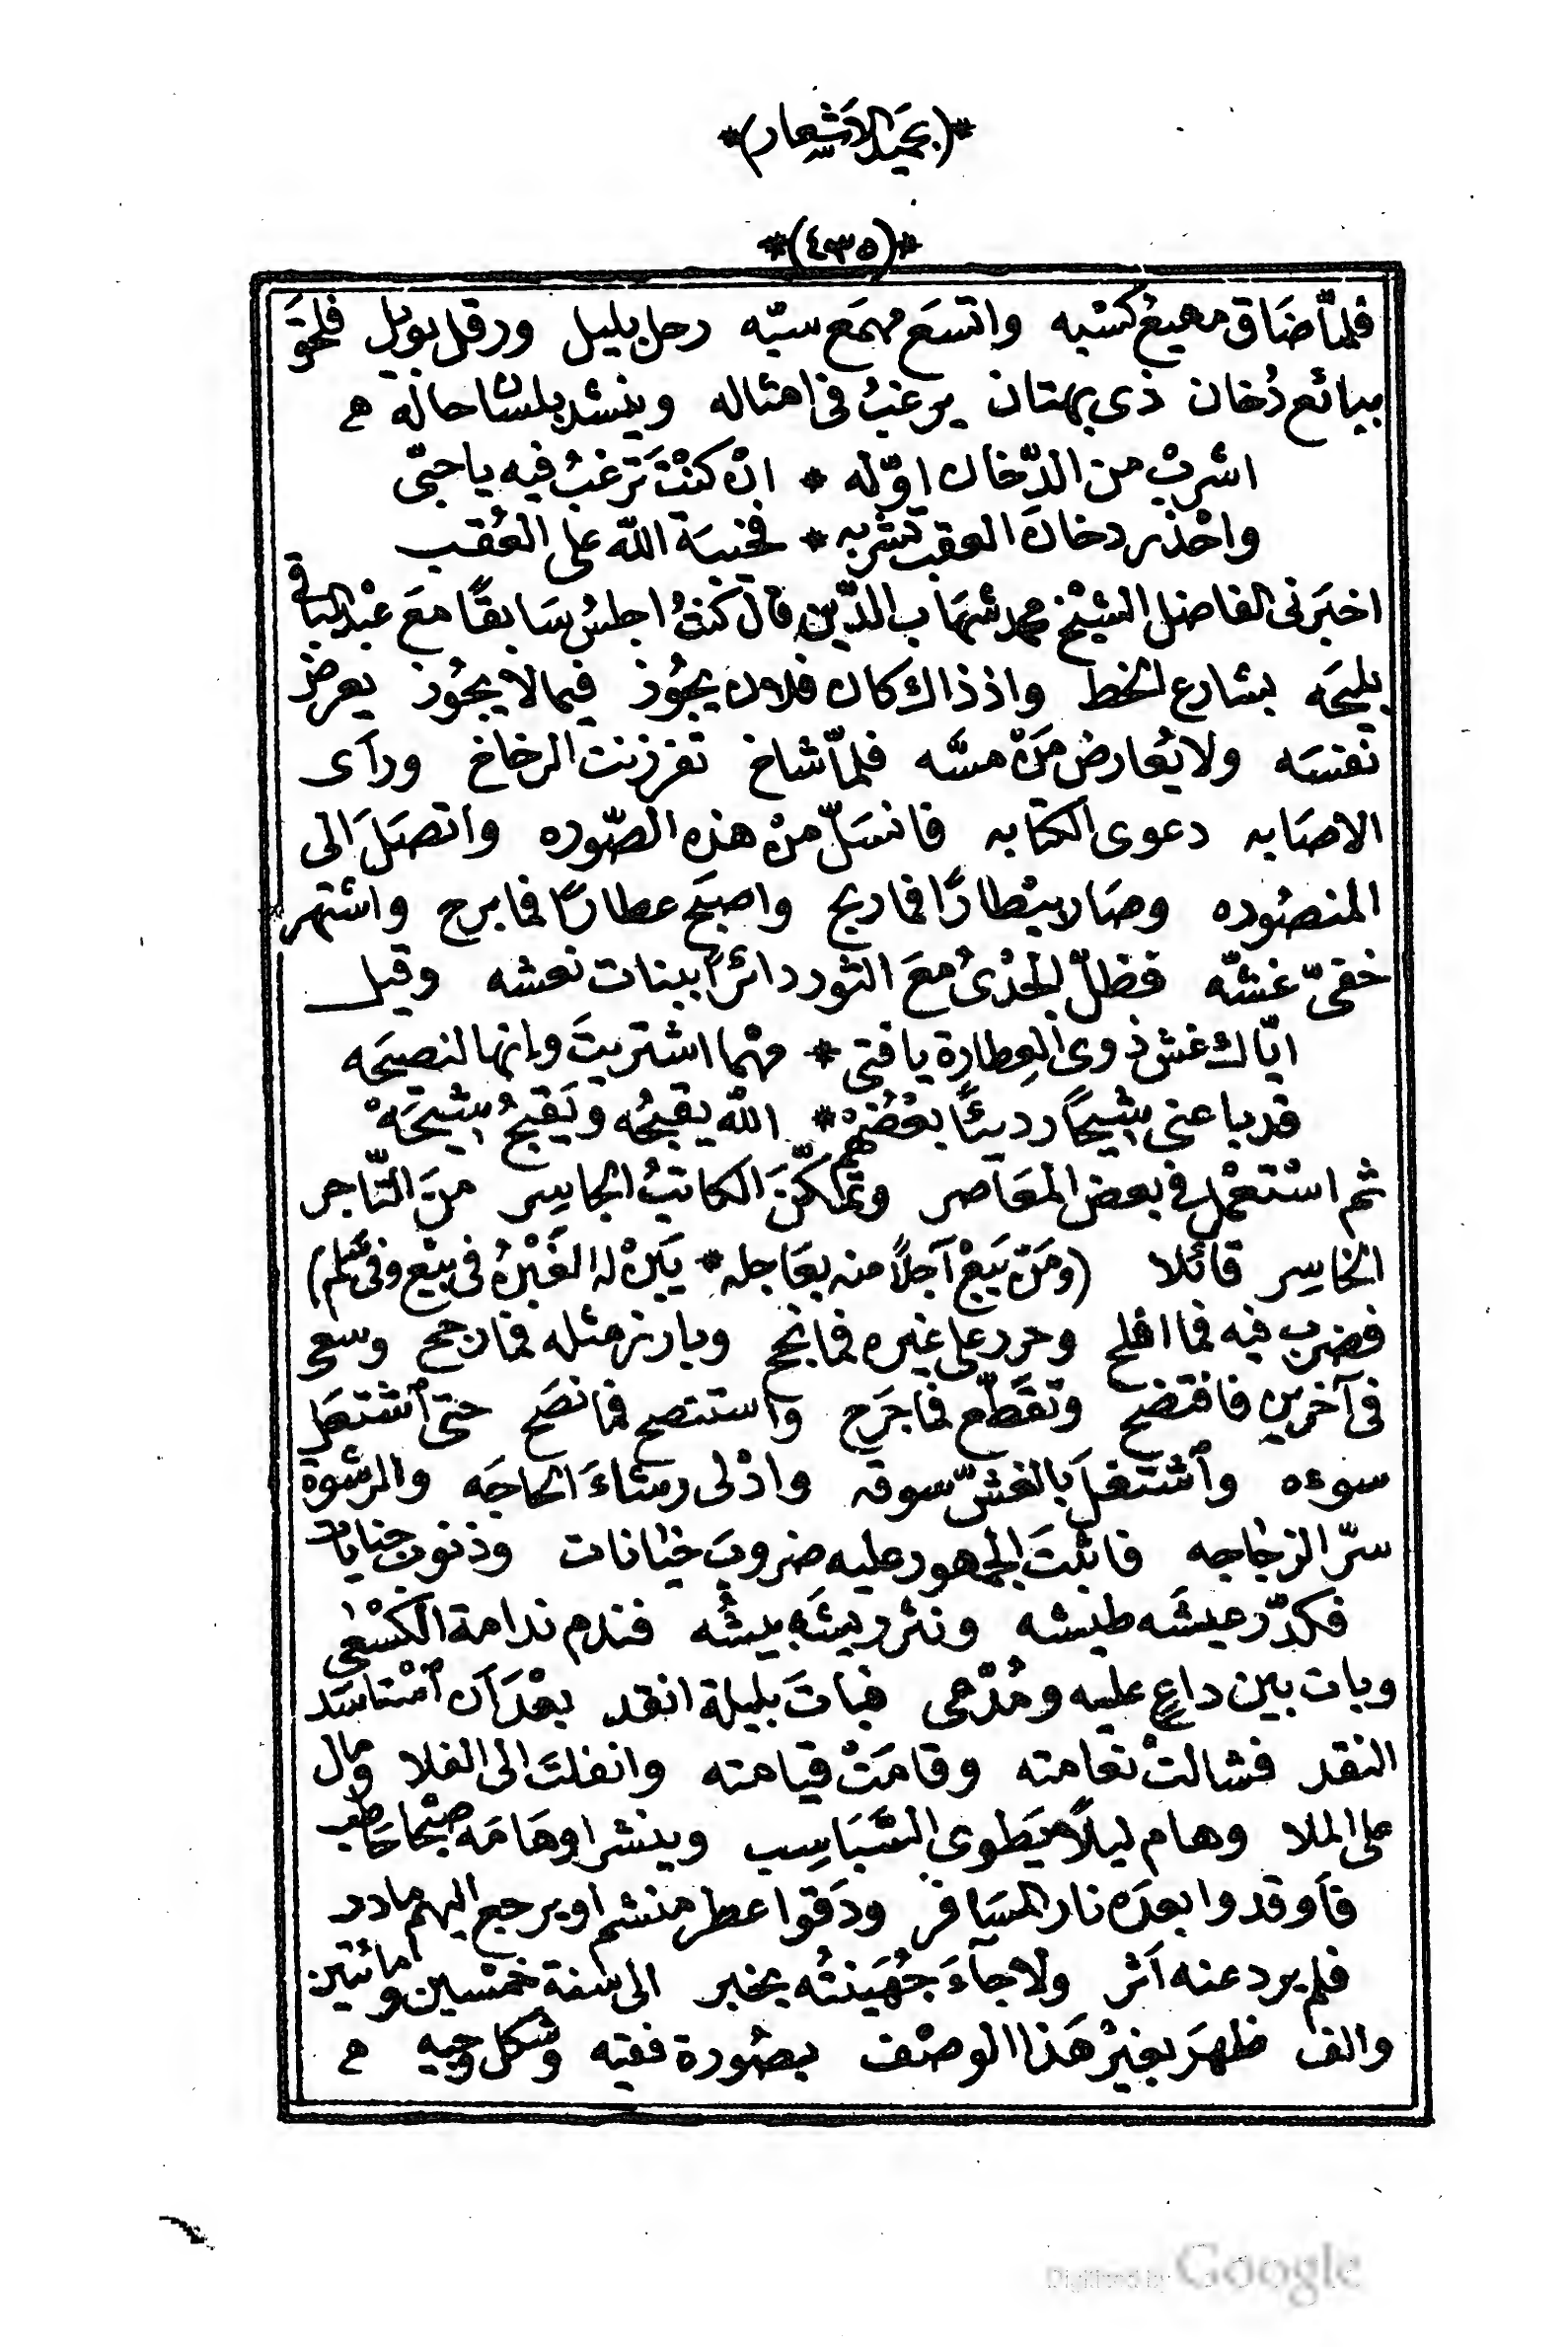 *(بحميد الاشعار)*
*(٤٣٥)*
فلمّا ضَاق مهيعُ كسْبه واتسَع مهمَع سبّه رحل بليل ورقل بويل فلحقَ
ببائع دُخان ذى بهتان يرغبُ فى امثاله وينشد بلسان حاله
اشربْ من الدّخان اوّله * ان كنْتَ ترغبُ فيه يا حبّى
واحْذر دخان العقب تشربه * فخيبَة الله على العُقب
اخبَرنى الفاضل الشيْخ محمد شهَاب الدّين قال كنتُ اجلسُ سَابقًا مَعَ عبْد الباقى
بليحَه بشارع الخط واذ ذاك كان فلان يجُوز فيما لا يجُوز يعرض
نفسَه ولا يُعارض مَنْ مسَّه فلمّا شاخ تفرزنت الرخاخ ورآى
الاصَابه دعوى الكتابه فانسَلّ منْ هذه الصّوره واتصَلَ الى
المنصُوره وصَار بيْطارًا فما ربح واصبَح عطارًا فما برح واشتهر
خفىّ غشّه فظلّ الجَدْىُ معَ الثور دائرًا ببنات نعشه وقيل
ايّاك غش ذوى العِطارة يا فتى * مهْما اشتريتَ وانها لنصيحَه
قد باعنى شِيحًا رديئًا بعْضُهمْ * الله يقبحُه ويَقبحُ شِيحَهْ
ثم اسْتعْمل فى بعض المعَاصر وتمكّنَ الكاتبُ الجاسِر منَ التّاجر
الخاسِر قائلا (ومَنْ يَبعْ آجلاً منه بعَاجله * يَبنْ له الغَبْنُ فى بيْع وفى سَلم)
فضرب فيه فما افلح وحرد على غيره فما نجح وبارز مثله فما رجح وسعى
فى آخرين فافتضح وتقَطّع فما جَرَح واستنصح فما نصَح حتى ٱشتعَل
سوءه وٱشتغلَ بالغشّ سوقه وادْلى رشاءَ الحاجَه والرشوة
سرّ الزجَاجه فاثبتَ الجمهور عليه ضروبَ خيَانات وذنوب جنايات
فكدّر عيشَه طيشه ونثر ريشَه بيشُه فندم ندامة الكسْعى
وبات بين داعٍ عليه ومُدّعى فباتَ بليلة انقد بعْدَ اَن ٱسْتاسَد
النقد فشالتْ نعامته وقامَتْ قيامته وانفلتَ الى الفلا ومال
على الملا وهام ليلاً يَطوى السَّبَاسِب وينشر اوهَامَه صبْحا خاطب
فاَوقدوا بعده نار المسَافر ودَقوا عطر منشم او يرجع اليهم مادر
فلم يرد عنه اَثر ولا جآءَ جُهَينتُه بخبر الى سَنة خمْسين ومائتين
والف ظهرَ بغيْر هَذا الوصْف بصُورة فقيه وشكل وجيه
Digitized by Google